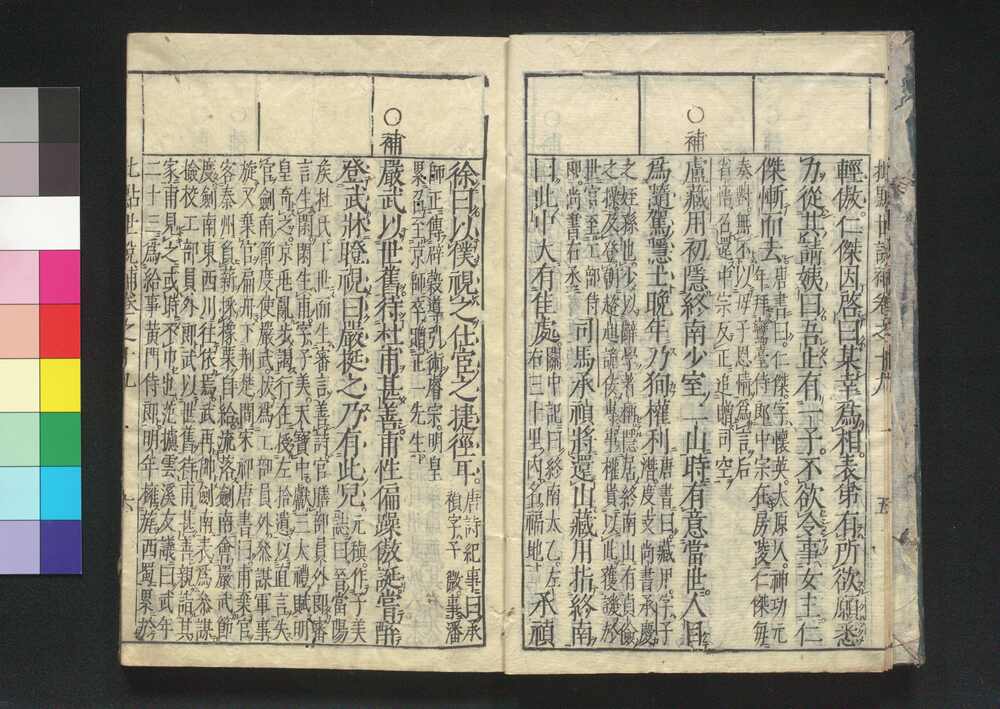 批點世說補卷之十九 五
輕傲。仁傑因啓曰某幸為相。表弟有所欲願悉
力從其請姨曰吾止有一子不欲令事女主仁
傑慚而去
唐書曰仁傑。字懷英。太原人。神功元
年拜鸞臺侍郎中宗在房陵仁傑每
奏對無不以母子恩情為言后
省悟召還中宗反正追贈司空
○補
盧藏用初隱終南少室二山時有意當世人目
為隨駕隱士晚年乃狥權利
唐書曰藏用。字子
潛度支尚書承慶
之姪孫也少以辭學著稱隱居終南山有貞儉
之操及登朝趦趄詭佞專事權貴以此獲譏於
世官至工部侍
郎。尚書右丞
司馬承禎將還山藏用指終南
曰此中大有佳處
關中記曰終南太乙。左
右三十里內名福地
承禎
徐曰以僕視之仕宦之捷徑耳。
唐詩紀事曰承
禎字子微事潘
師正傳辟穀道引術睿宗。明皇
累召至京師卒贈正一先生
○補
嚴武以世舊待杜甫甚善。甫性偏躁傲誕嘗醉
登武牀瞪視曰嚴挺之乃有此兒。
元稹作子美
誌曰晉當陽
矦杜氏。十世而生審言善詩官膳部員外郎審
言生閑閑生甫。字子美天寶中獻三大禮賦明
皇奇之。京兆亂步謁行在授左拾遺以直言失
官劍南節度使嚴武狀為工部員外參謀軍事
旋又棄官扁舟下荊楚間宋祁唐書曰甫棄官
客秦州負薪採橡栗自給流落劍南會嚴武節
度劍南東西川往依焉武再帥劍南表為參謀
檢校工部員外郎武以世舊待甫甚善親詣其
家甫見之或時不巾也范攄雲溪友議曰武年
二十三為給事黃門侍郎明年擁旄西蜀累於
批點世說補卷之十九 六